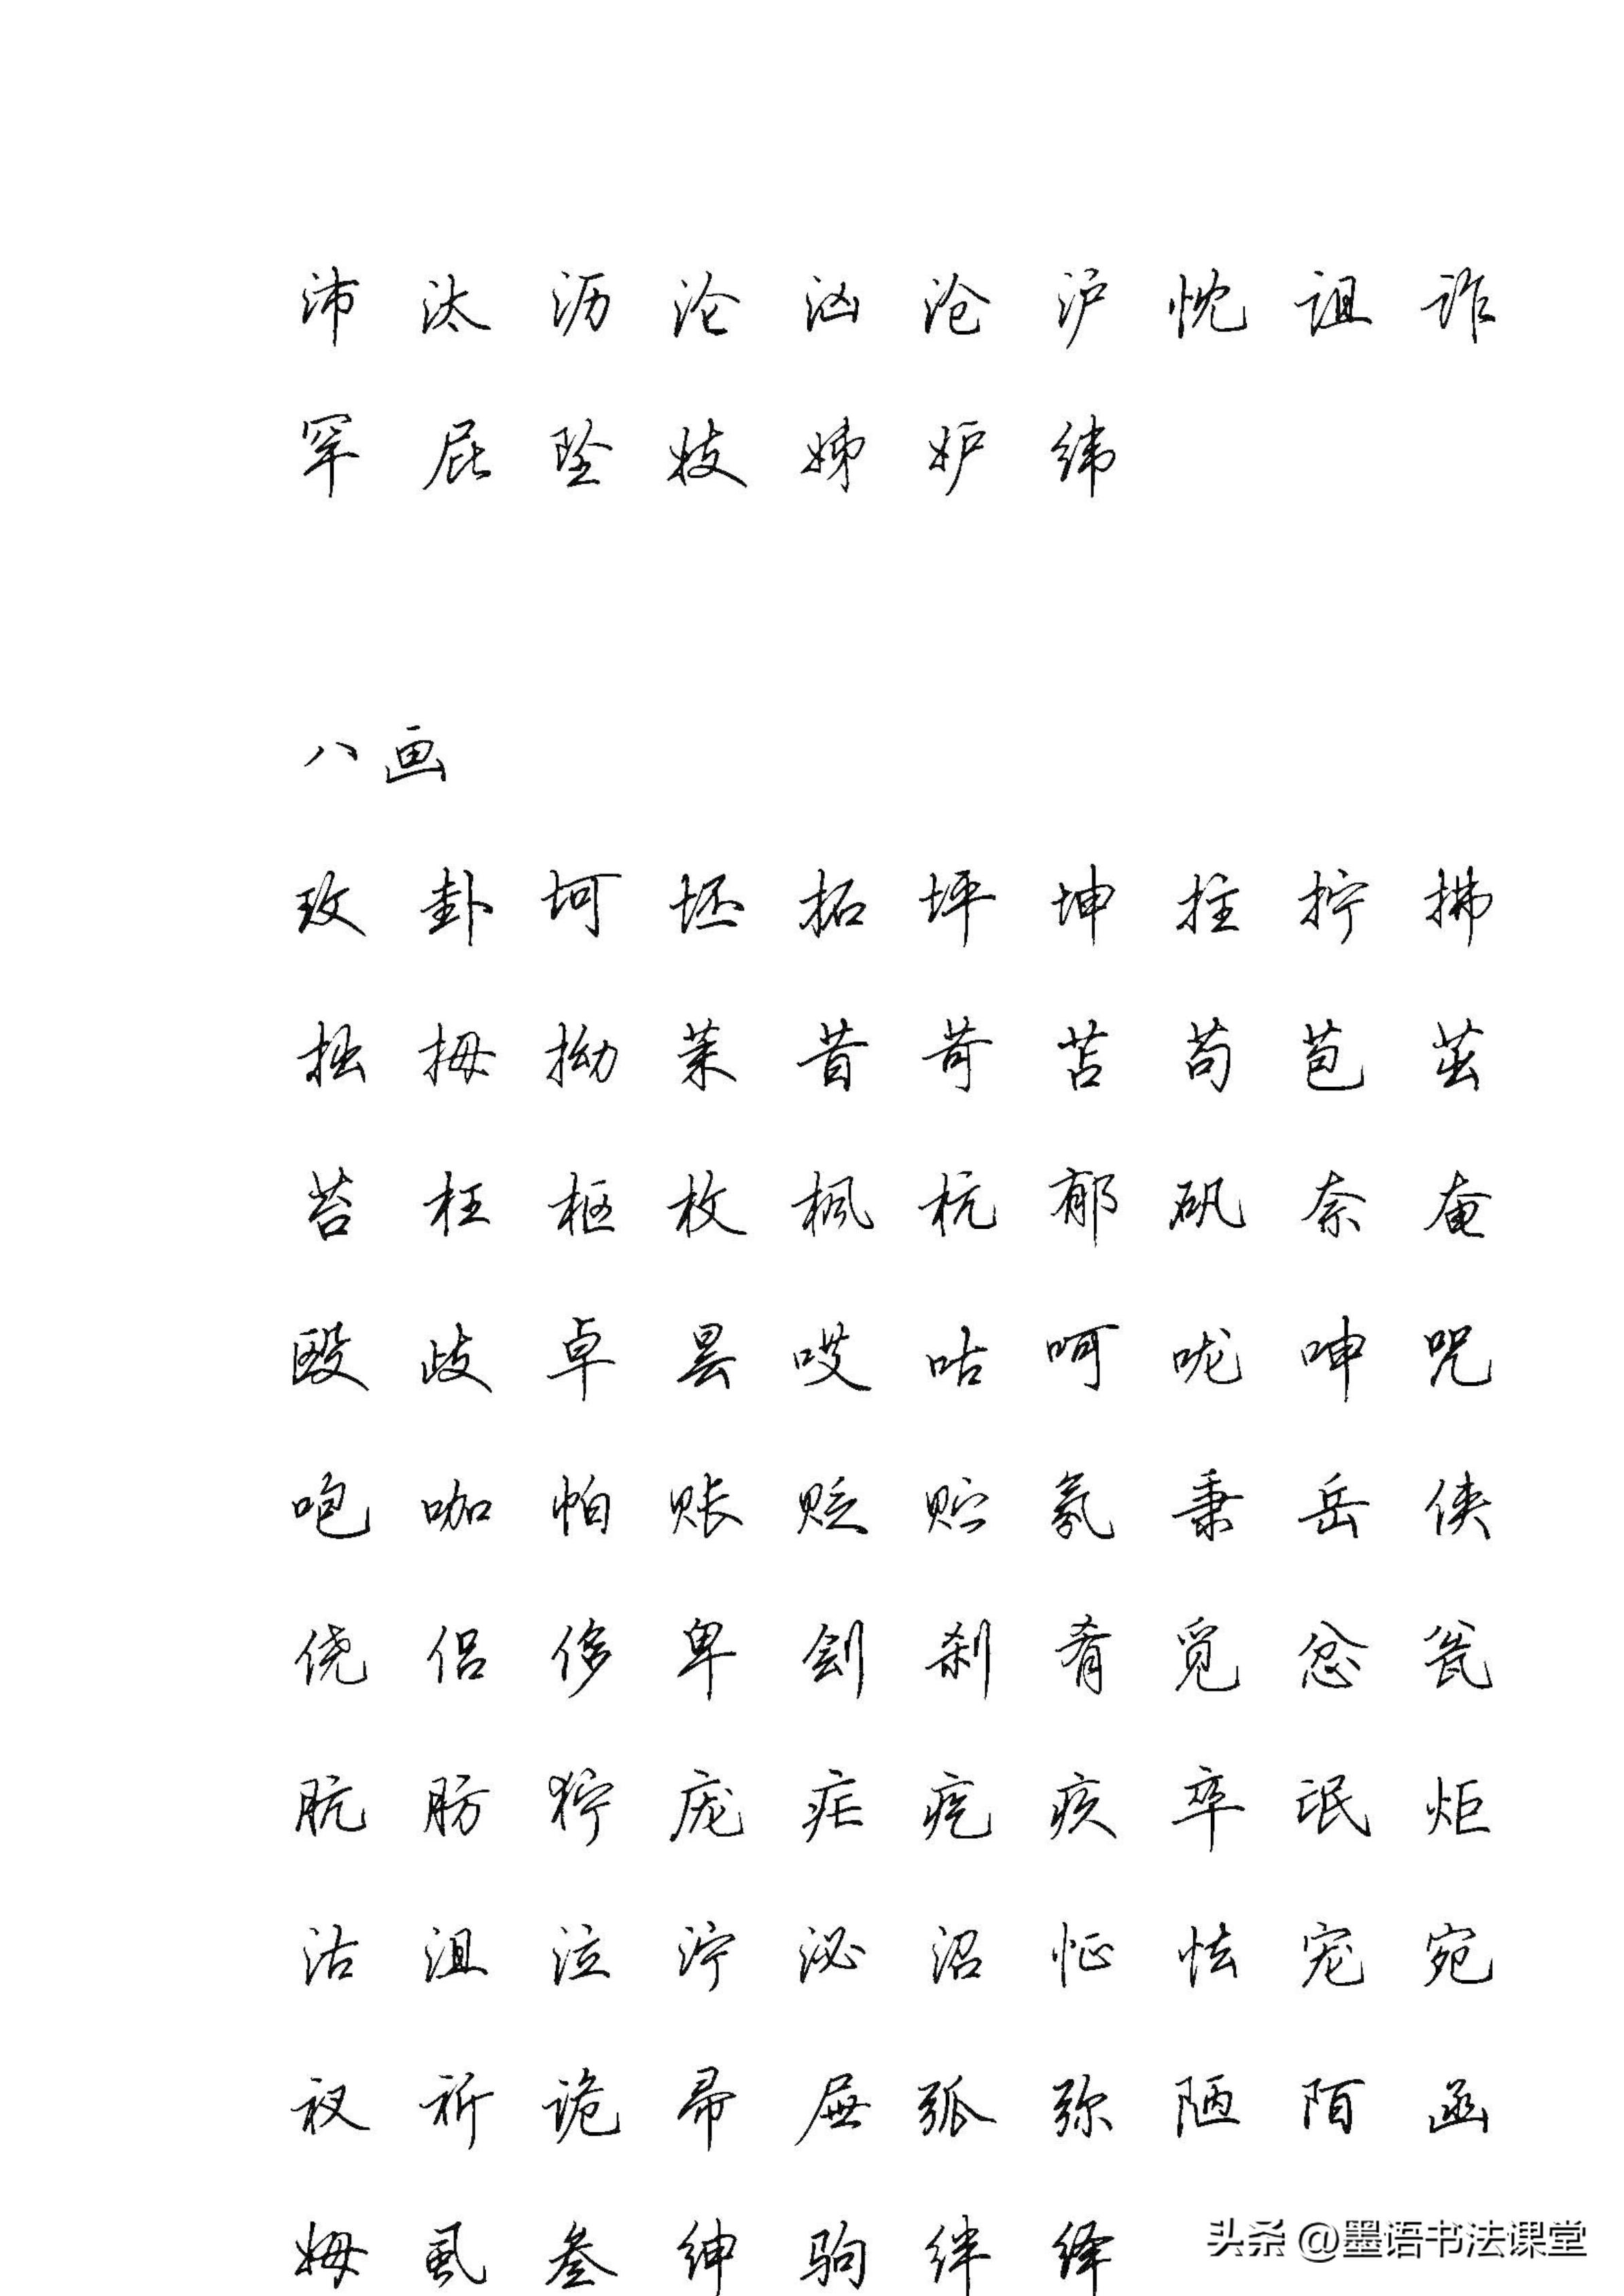 沛 汰 沥 沦 汹 沧 沪 忱 诅 诈
罕 屁 坠 妓 姊 妒 纬
八画
玫 卦 坷 坯 拓 坪 坤 拄 拧 拂
拙 拇 拗 茉 昔 苛 苫 苟 苞 茁
苔 枉 枢 枚 枫 杭 郁 矾 奈 奄
殴 歧 卓 昙 哎 咕 呵 咙 呻 咒
咆 咖 帕 账 贬 贮 氛 秉 岳 侠
侥 侣 侈 卑 刽 刹 肴 觅 忿 瓮
肮 肪 狞 庞 疟 疙 疚 卒 氓 炬
沽 沮 泣 泞 泌 沼 怔 怯 宠 宛
衩 祈 诡 帚 屉 弧 弥 陋 陌 函
姆 虱 叁 绅 驹 绊 绎
头条 @墨语书法课堂